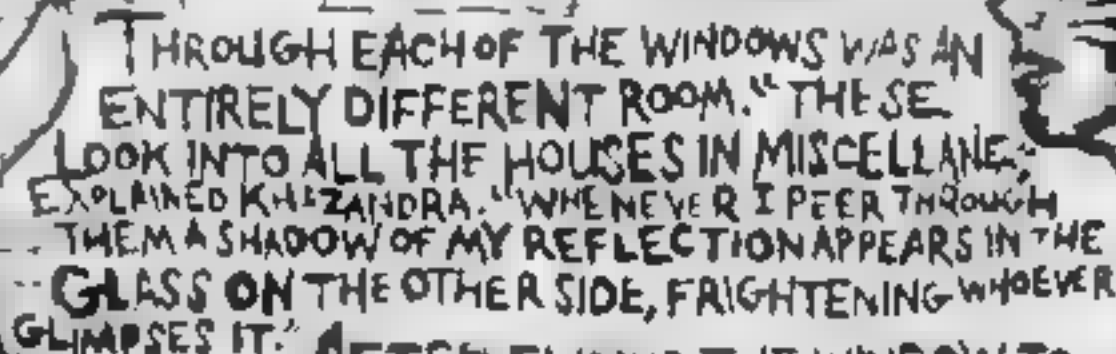 THROUGH EACH OF THE WINDOWS WAS AN
ENTIRELY DIFFERENT ROOM. "THESE
LOOK INTO ALL THE HOUSES IN MISCELLANE,"
EXPLAINED KHAZANDRA. "WHENEVER I PEER THROUGH
THEM A SHADOW OF MY REFLECTION APPEARS IN THE
GLASS ON THE OTHER SIDE, FRIGHTENING WHOEVER
GLIMPSES IT."